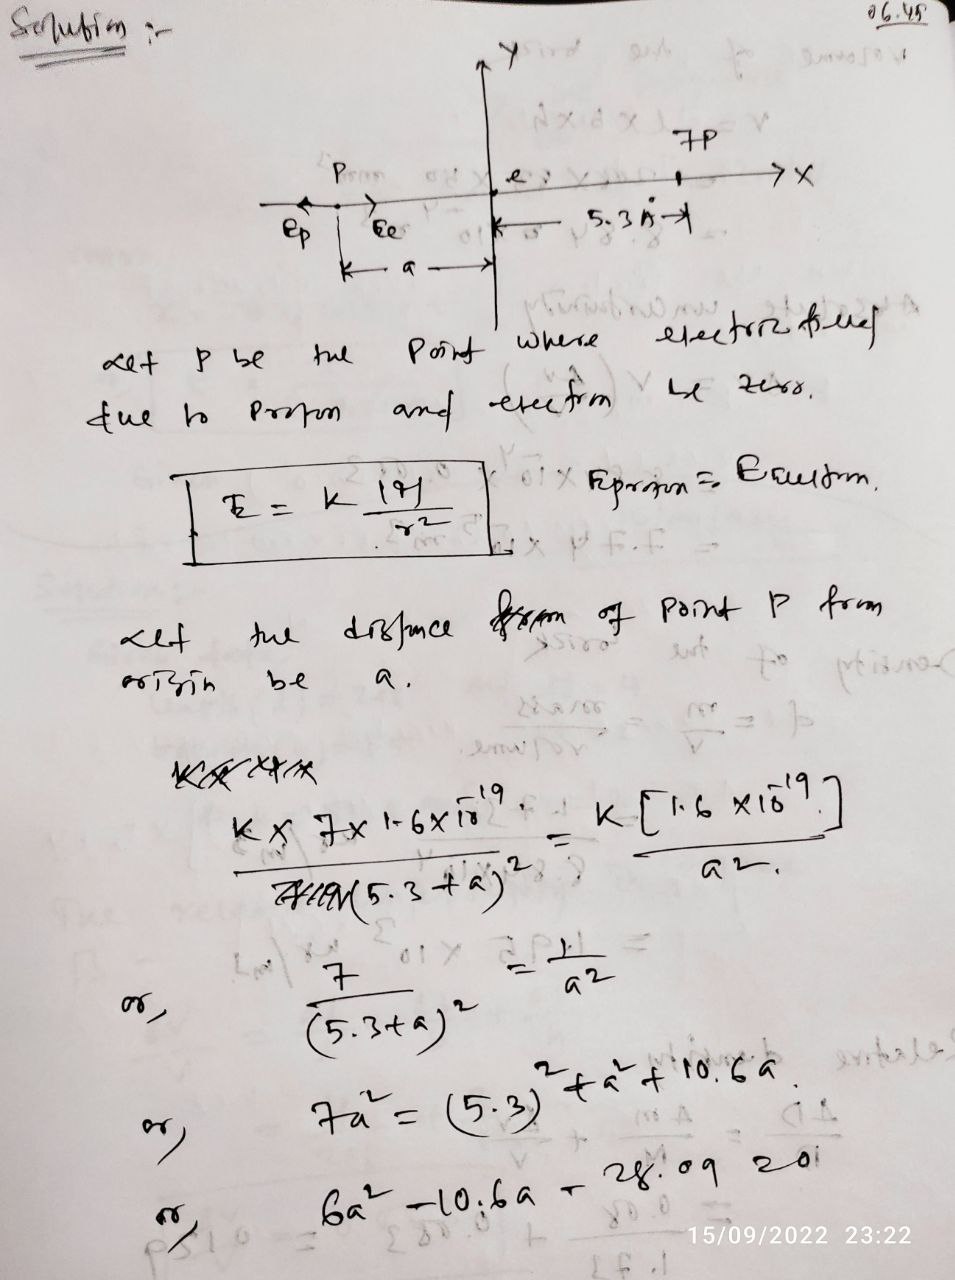 06.45
Solution :-
Y
7P
P
e
X
Ep
Ee
5.3 Å
a
Let P be the point where electric field
due to proton and electron be zero.
E = K |q| / r² Eproton = Eelectron.
Let the distance of point P from
origin be a.
K × 7 × 1.6 × 10⁻¹⁹ / (5.3 + a)² = K [1.6 × 10⁻¹⁹] / a².
or, 7 / (5.3 + a)² = 1 / a²
or, 7a² = (5.3)² + a² + 10.6a.
or, 6a² - 10.6a - 28.09 = 0
15/09/2022 23:22